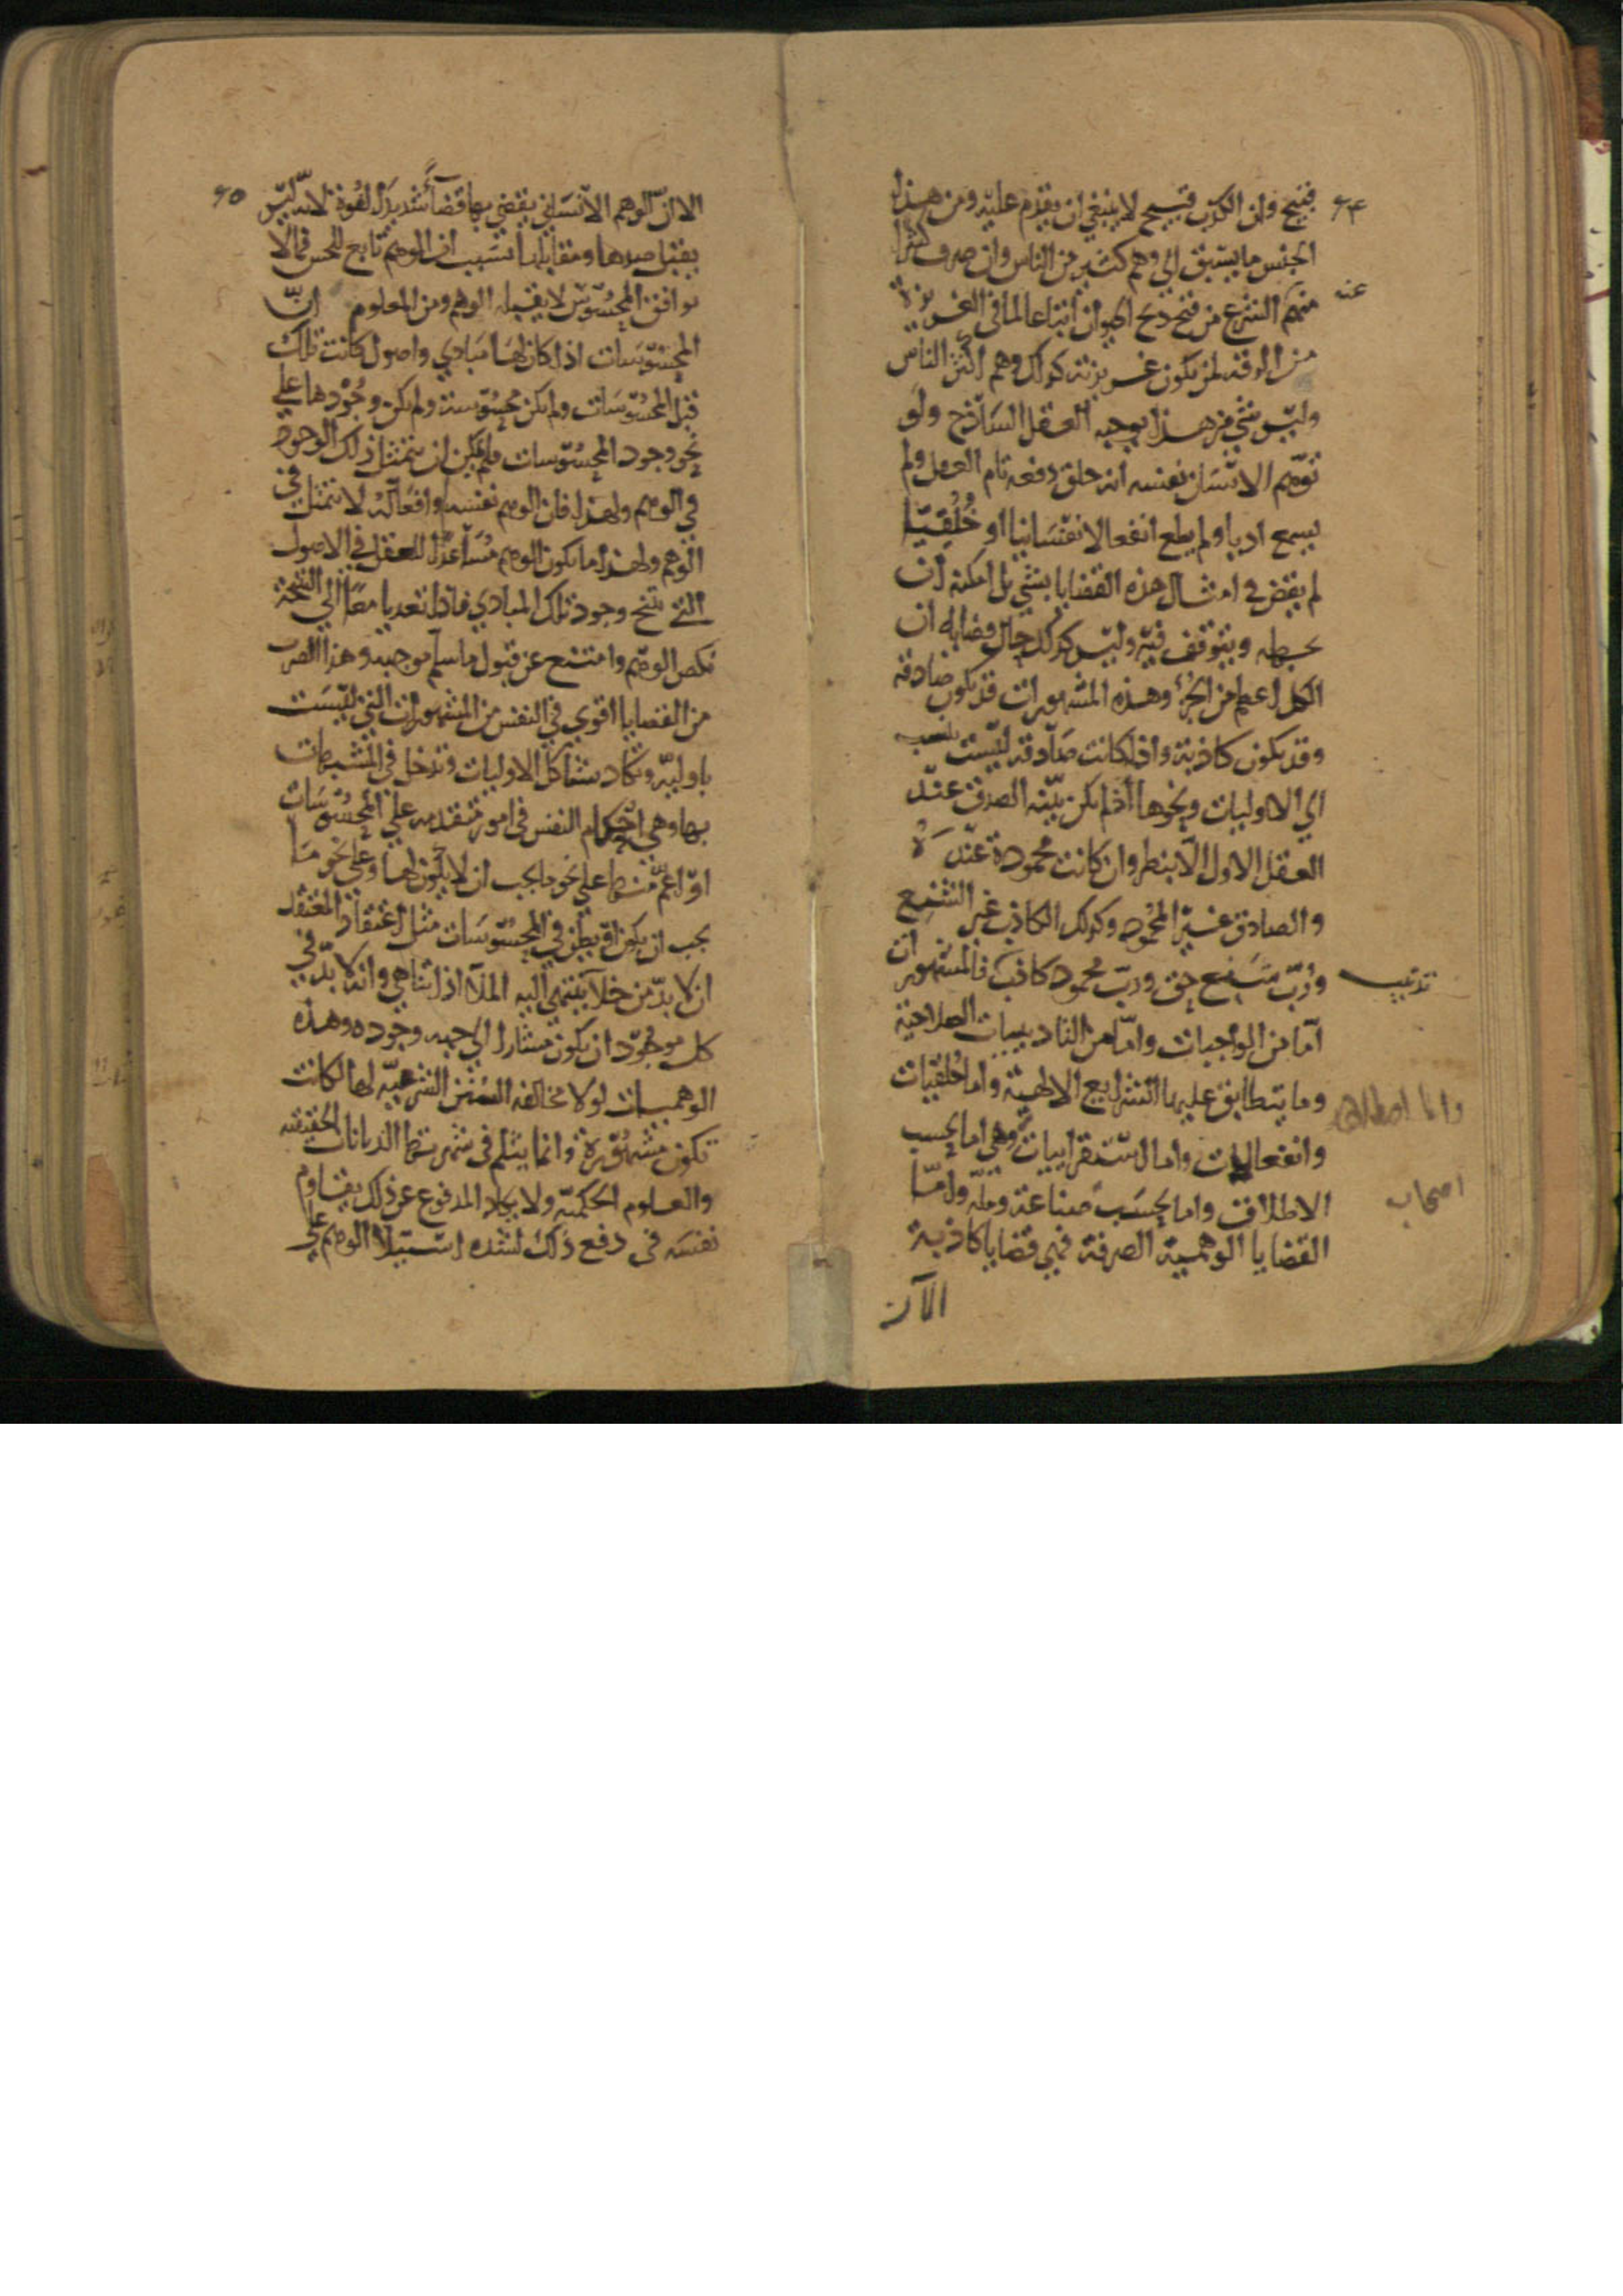 ٦٤
قبيح وان الكذب قبيح لا ينبغي ان يقدم عليه ومن هذا
الجنس ما يسبق الى وهم كثير من الناس وان صرف كثيرا
عنه
منهم الشرع من قبح ذبح الحيوان اتباعا لما في الغريزة
من الرقة لمن يكون غريزته كذلك وهم اكثر الناس
وليس شي من هذا يوجبه العقل الساذج ولو
توهم الانسان نفسه انه خلق دفعه تام العقل ولم
يسمع ادبا ولم يطع انفعالا نفسانيا او خُلُقيّا
لم يقض في امثال هذه القضايا بشي بل امكنه ان
يجهله ويتوقف فيه وليس كذلك حال قضايا له ان
الكل اعظم من الجزء وهذه المشهورات قد يكون صادقه
وقد يكون كاذبة واذا كانت صادقه ليست ينسب
الى الاوليات ونحوها اذا لم يكن بيّنه الصدق عند
العقل الاول الا بنظر وان كانت محمودة عنده
والصادق غير المحمود وكذلك الكاذب غير الشنيع
ورُبّ شنيع حق وربّ محمود كاذب فالمشهورات
تذنيب
امّا من الواجبات وامّا من التاديبيات الصلاحية
وما يتطابق عليها الشرايع الالهية واما خُلقيات
وانفعاليات واما استقراييات وهي اما بحسب
واما اصطلاحيه
الاطلاق واما بحسب صناعة وملّه وامّا
اصحاب
القضايا الوهمية الصرفة فهي قضايا كاذبة
الا ان
٦٥
الا انّ الوهم الانساني يقضي بها قضاءً شديد القوة لانه ليس
يقبل ضدها ومقابلها بسبب ان الوهم تابع للحس فما لا
يوافق المحسوس لا يقبله الوهم ومن المعلوم انّ
المحسوسات اذا كان لها مبادي واصول كانت تلك
قبل المحسوسات ولم يكن محسوسة ولم يكن وجُودها على
نحو وجود المحسوسات فلم يمكن ان يتمثل ذلك الوجود
في الوهم ولهذا فان الوهم نفسه وافعاله لا تتمثل في
الوهم ولهذا ما يكون الوهم مُساعدًا للعقل في الاصول
التي ينتج وجود تلك المبادي فاذا تعديا معًا الى النتيجة
نكص الوهم وامتنع عن قبول ما سلّم موجبه وهذا الضرب
من القضايا اقوي في النفس من المشهورات التي ليست
باوليّه وتكاد تشاكل الاوليات وتدخل في المشبهات
بها وهي احكام النفس في امور متقدمه على المحسوسات
او اعمّ منها على نحو ما يجب ان لا يكون لها وعلى نحو ما
يجب ان يكون او يظن في المحسوسات مثل اعتقاد المعتقد
ان لا بدّ من خلاء ينتهي اليه الملاء اذا تناهي وانه لا بدّ في
كل موجُود ان يكون مشارا الى جهه وجوده وهذه
الوهميات لولا مخالفه السنن الشرعيّه لها لكانت
تكون مشهُورة وانما يثلم في شهرتها الديانات الحقيقيه
والعلوم الحكميّه ولا يكاد المدفوع عن ذلك يقاوم
نفسَه في دفع ذلك لشده استيلاء الوهم على